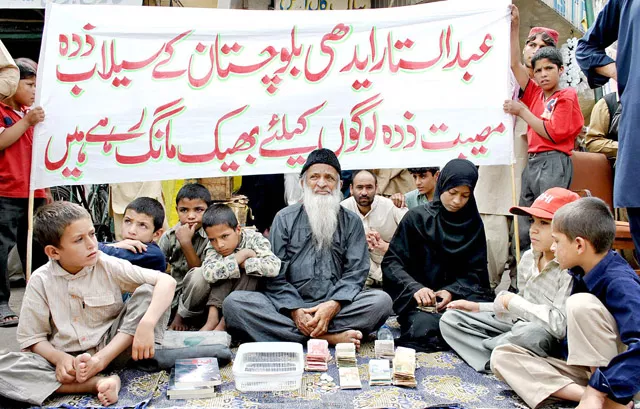 عبدالستار ایدھی بلوچستان کے سیلاب ذدہ
مصیبت ذدہ لوگوں کیلئے بھیک مانگ رہے ہیں